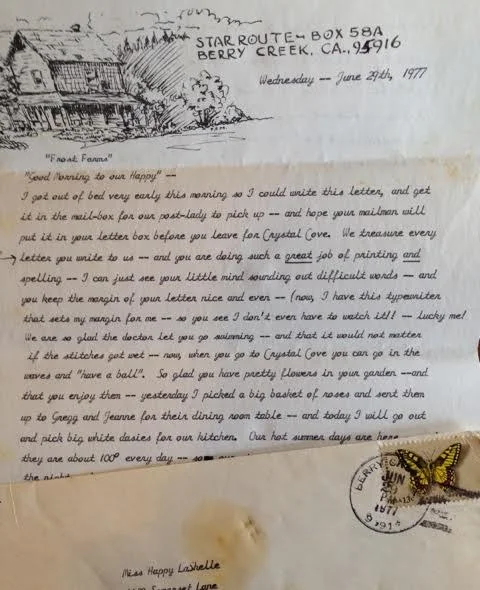 STAR ROUTE - BOX 58A
BERRY CREEK, CA., 95916
Wednesday -- June 29th, 1977
"Frost Farms"
"Good Morning to our Happy" --
I got out of bed very early this morning so I could write this letter, and get
it in the mail-box for our post-lady to pick up -- and hope your mailman will
put it in your letter box before you leave for Crystal Cove. We treasure every
letter you write to us -- and you are doing such a great job of printing and
spelling -- I can just see your little mind sounding out difficult words -- and
you keep the margin of your letter nice and even -- (now, I have this typewriter
that sets my margin for me -- so you see I don't even have to watch it!! -- lucky me!
We are so glad the doctor let you go swimming -- and that it would not matter
if the stitches got wet -- now, when you go to Crystal Cove you can go in the
waves and "have a ball". So glad you have pretty flowers in your garden --and
that you enjoy them -- yesterday I picked a big basket of roses and sent them
up to Gregg and Jeanne for their dining room table -- and today I will go out
and pick big white dasies for our kitchen. Our hot summer days are here
they are about 100° every day -- so our
the night
BERRY CR
JUN
29
PM
1977
Miss Happy LaShelle
Somerset Lane